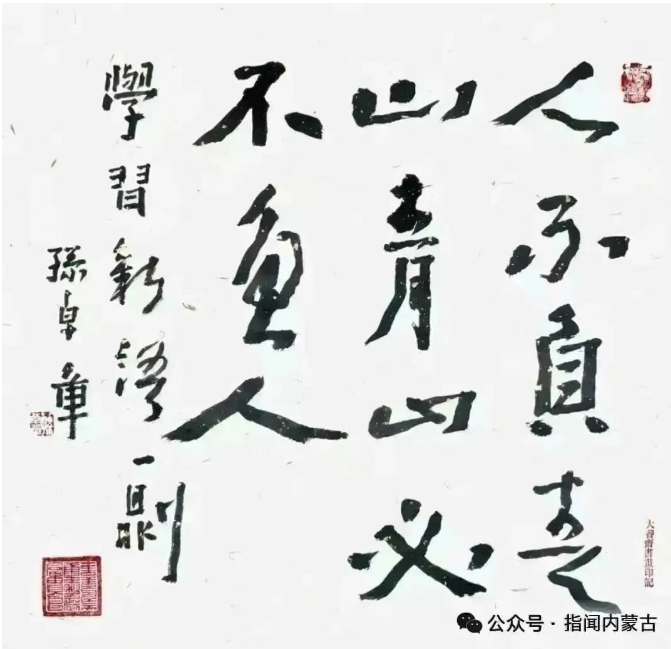 人不負青
山青山必
不負人
學習新語一則
孫卓章
大養齋書畫印記
公众号·指闻内蒙古